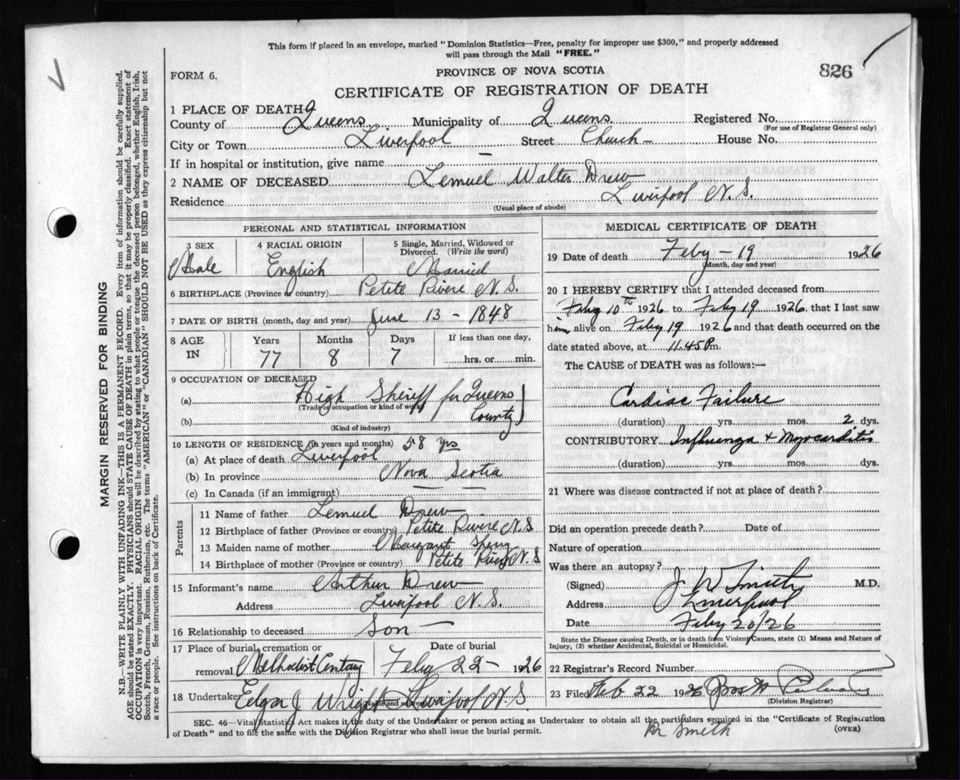 This form if placed in an envelope, marked "Dominion Statistics—Free, penalty for improper use $300," and properly addressed
will pass through the Mail "FREE."
FORM 6.
PROVINCE OF NOVA SCOTIA
826
CERTIFICATE OF REGISTRATION OF DEATH
1 PLACE OF DEATH
County of Queens Municipality of Queens Registered No.
(For use of Registrar General only)
City or Town Liverpool Street Church House No.
If in hospital or institution, give name —
2 NAME OF DECEASED Lemuel Walter Drew
Residence Liverpool N.S.
(Usual place of abode)
PERSONAL AND STATISTICAL INFORMATION
3 SEX
Male
4 RACIAL ORIGIN
English
5 Single, Married, Widowed or Divorced. (Write the word)
Married
6 BIRTHPLACE (Province or country) Petite Rivere N.S.
7 DATE OF BIRTH (month, day and year) June 13 - 1848
8 AGE IN
Years Months Days If less than one day,
77 8 7 hrs. or min.
9 OCCUPATION OF DECEASED
(a) High Sheriff for Queens County
(Trade, occupation or kind of work)
(b)
(Kind of industry)
10 LENGTH OF RESIDENCE (in years and months) 58 yrs
(a) At place of death Liverpool
(b) In province Nova Scotia
(c) In Canada (if an immigrant) — —
Parents
11 Name of father Lemuel Drew
12 Birthplace of father (Province or country) Petite Rivere N.S
13 Maiden name of mother Margaret
14 Birthplace of mother (Province or country) Petite N.S
15 Informant's name Arthur Drew
Address Liverpool N.S.
16 Relationship to deceased Son —
17 Place of burial, cremation or removal Date of burial
Methodist Feby 22 - 1926
18 Undertaker Edgar J Wright Liverpool N.S
(Name and address)
MEDICAL CERTIFICATE OF DEATH
19 Date of death Feby - 19 1926
(Month, day and year)
20 I HEREBY CERTIFY that I attended deceased from
Feby 10th 1926 to Feby 19 1926 that I last saw
him alive on Feby 19 1926 and that death occurred on the
date stated above, at 11.45 P m.
The CAUSE OF DEATH was as follows:—
Cardiac Failure
(duration) yrs. mos. 2 dys.
CONTRIBUTORY Influenza + Myocarditis
(duration) yrs. mos. dys.
21 Where was disease contracted if not at place of death?
Did an operation precede death? Date of
Nature of operation
Was there an autopsy?
(Signed) J W Smith M.D.
Address Liverpool
Date Feby 20/26
State the Disease causing Death, or in death from Violent Causes, state (1) Means and Nature of
Injury, (2) whether Accidental, Suicidal or Homicidal.
22 Registrar's Record Number
23 Filed Feb 22 1926
(Division Registrar)
SEC. 46—Vital Statistics Act makes it the duty of the Undertaker or person acting as Undertaker to obtain all the particulars required in the "Certificate of Registration
of Death" and to file the same with the Division Registrar who shall issue the burial permit.
Smith
(OVER)
MARGIN RESERVED FOR BINDING
N.B.—WRITE PLAINLY WITH UNFADING INK—THIS IS A PERMANENT RECORD. Every item of information should be carefully supplied.
AGE should be stated EXACTLY. PHYSICIANS should STATE CAUSE OF DEATH in plain terms, so that it may be properly classified. Exact statement of
OCCUPATION is very important. RACIAL ORIGIN will be described by stating to what people or tongue the deceased person belonged, whether English, Irish,
Scotch, French, German, Russian, Ruthenian, etc. The terms "AMERICAN" or "CANADIAN" SHOULD NOT BE USED as they express citizenship but not
a race or people. See instructions on back of Certificate.